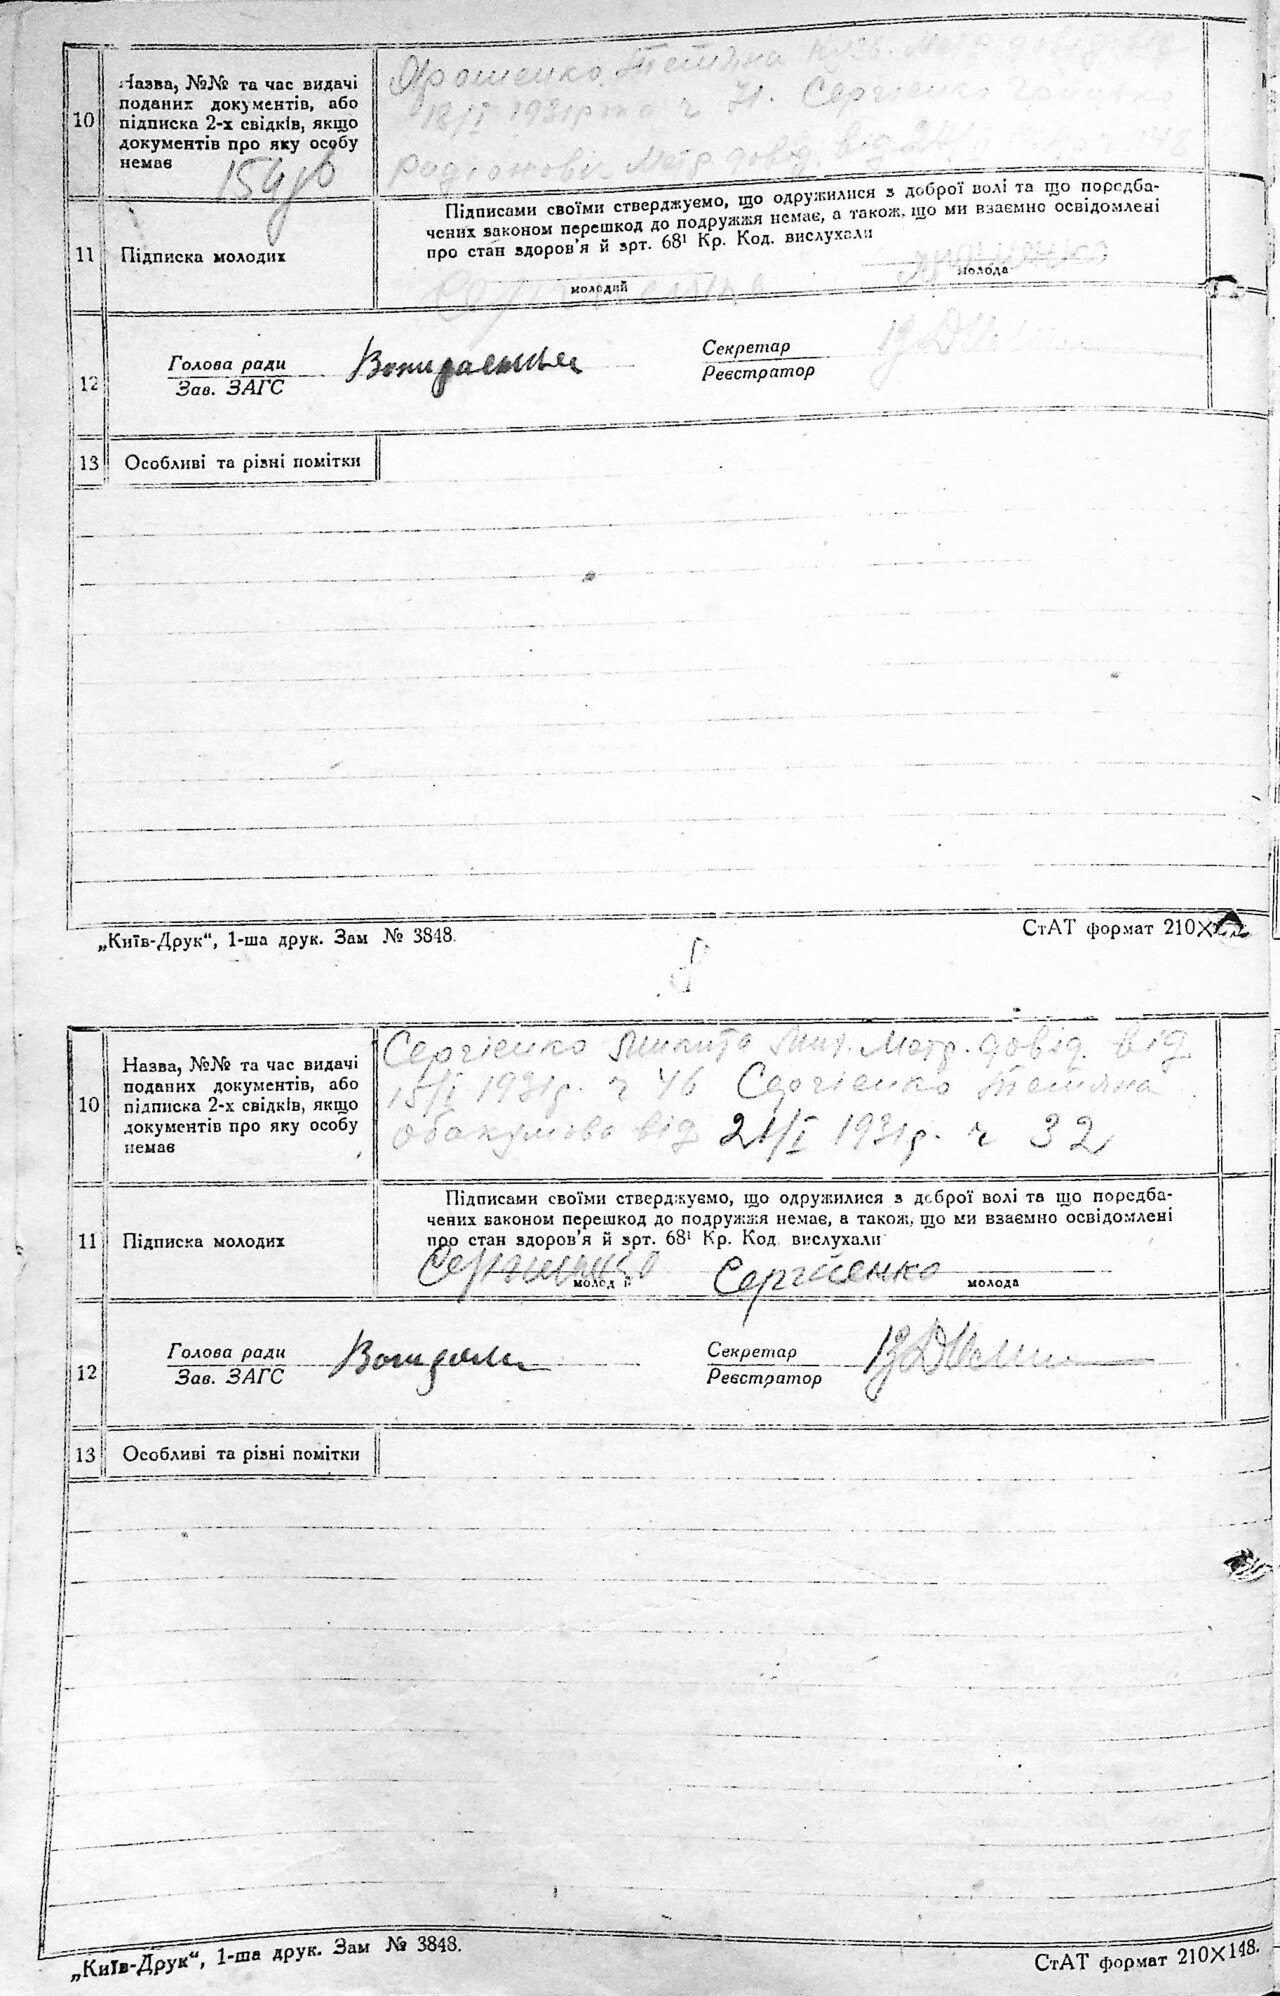 10
Назва, №№ та час видачі
поданих документів, або
підписка 2-х свідків, якщо
документів про яку особу
немає
Ярошенко Тетяна Кузь. Метр. довід. від
18/I 1931р. ч 71. Сергієнко
Радіонович Метр. довід. від
11
Підписка молодих
Підписами своїми стверджуємо, що одружилися з доброї волі та що передба-
чених законом перешкод до подружжя немає, а також, що ми взаємно освідомлені
про стан здоров'я й зрт. 68¹ Кр. Код. вислухали
молодий
молода
12
Голова ради
Зав. ЗАГС
Секретар
Реєстратор
13
Особливі та різні помітки
„Київ-Друк“, 1-ша друк. Зам № 3848.
СтАТ формат 210×
10
Назва, №№ та час видачі
поданих документів, або
підписка 2-х свідків, якщо
документів про яку особу
немає
Сергієнко Микита Мит. Метр. довід. від
15/I 1931р. ч 46 Сергієнко Тетяна
Обакумова від 21/I 1931р. ч 32
11
Підписка молодих
Підписами своїми стверджуємо, що одружилися з доброї волі та що передба-
чених законом перешкод до подружжя немає, а також, що ми взаємно освідомлені
про стан здоров'я й зрт. 68¹ Кр. Код. вислухали
Сергієнко
молода
12
Голова ради
Зав. ЗАГС
Секретар
Реєстратор
13
Особливі та різні помітки
„Київ-Друк“, 1-ша друк. Зам № 3848.
СтАТ формат 210×148.